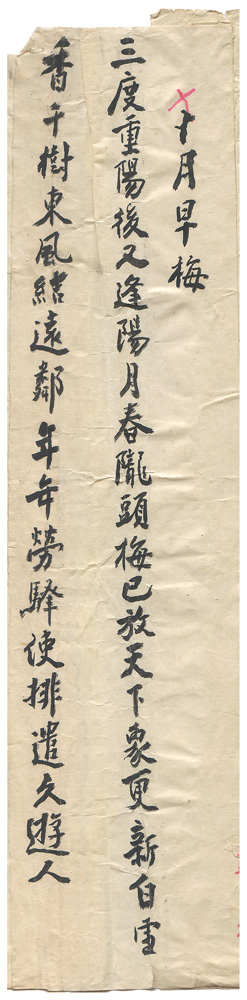 十月早梅
三度重陽後又逢陽月春隴頭梅已放天下象更新白雪
香千樹東風結遠鄰年年勞驛使排遣久遊人